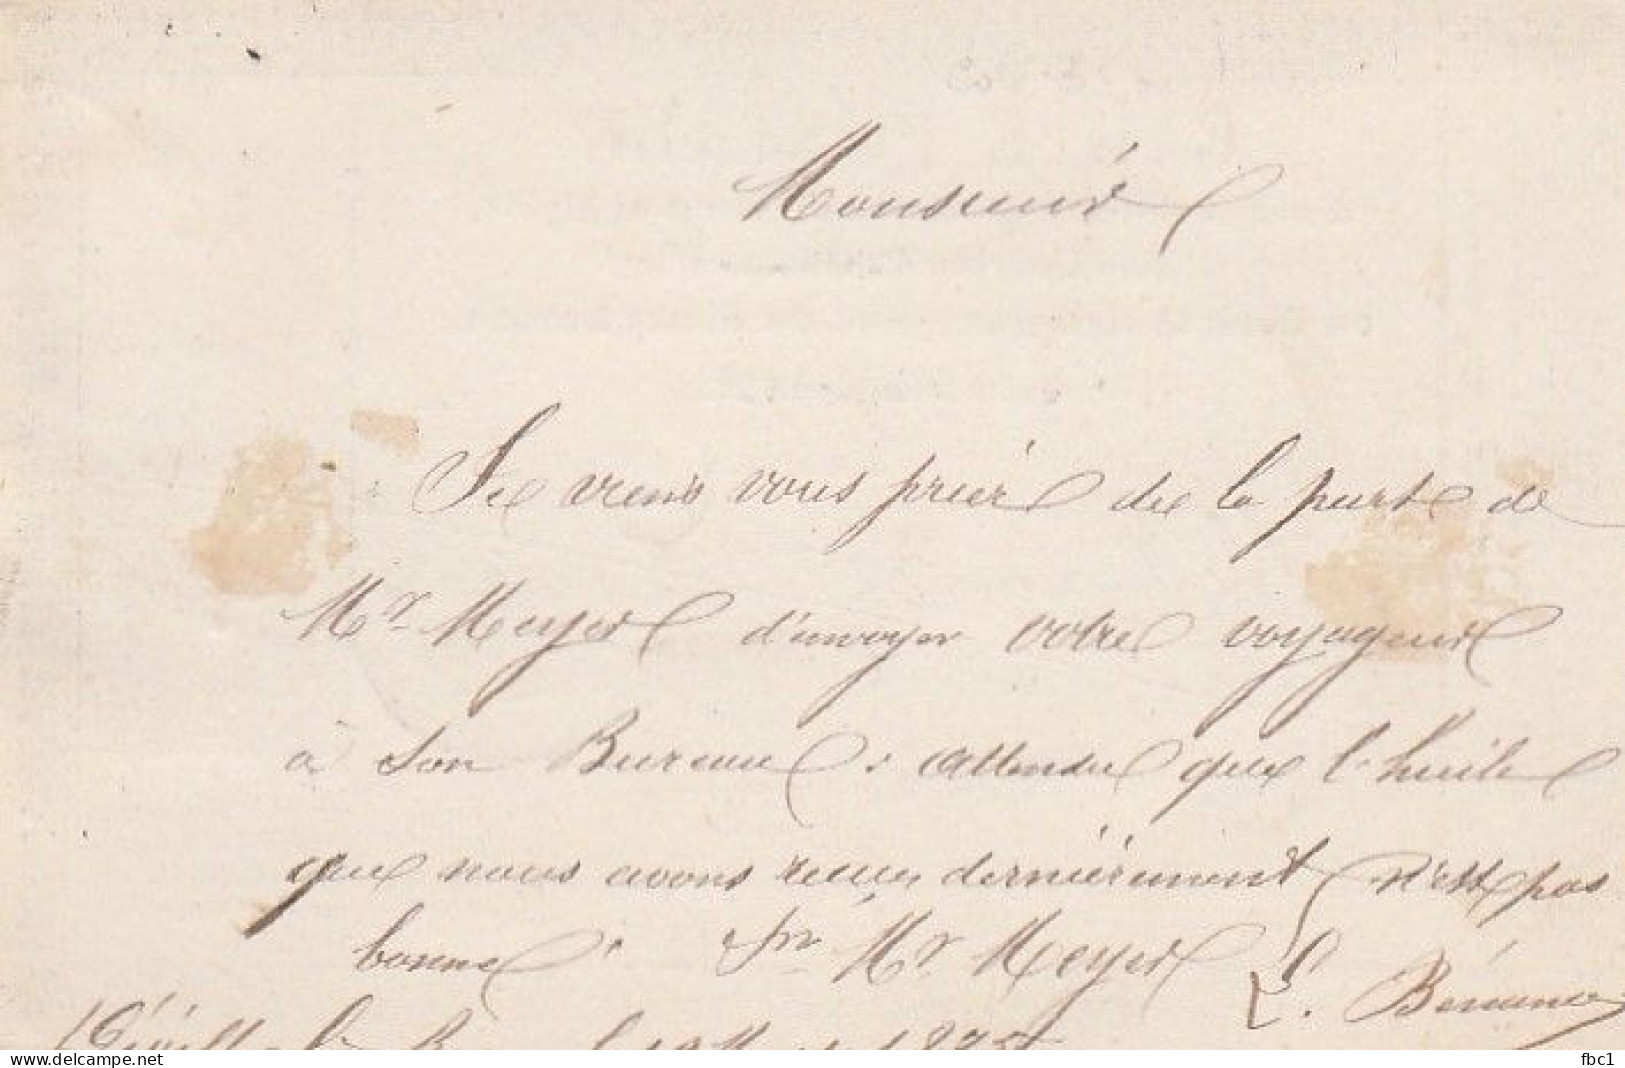 Monsieur
Je viens vous prier de la part de
Mr Meyer d'envoyer votre voyageur
à son Bureau : attendu que l'huile
que nous avons reçue dernièrement n'est pas
bonne. pr Mr Meyer
L.
Déville 1875
www.delcampe.net
fbc1